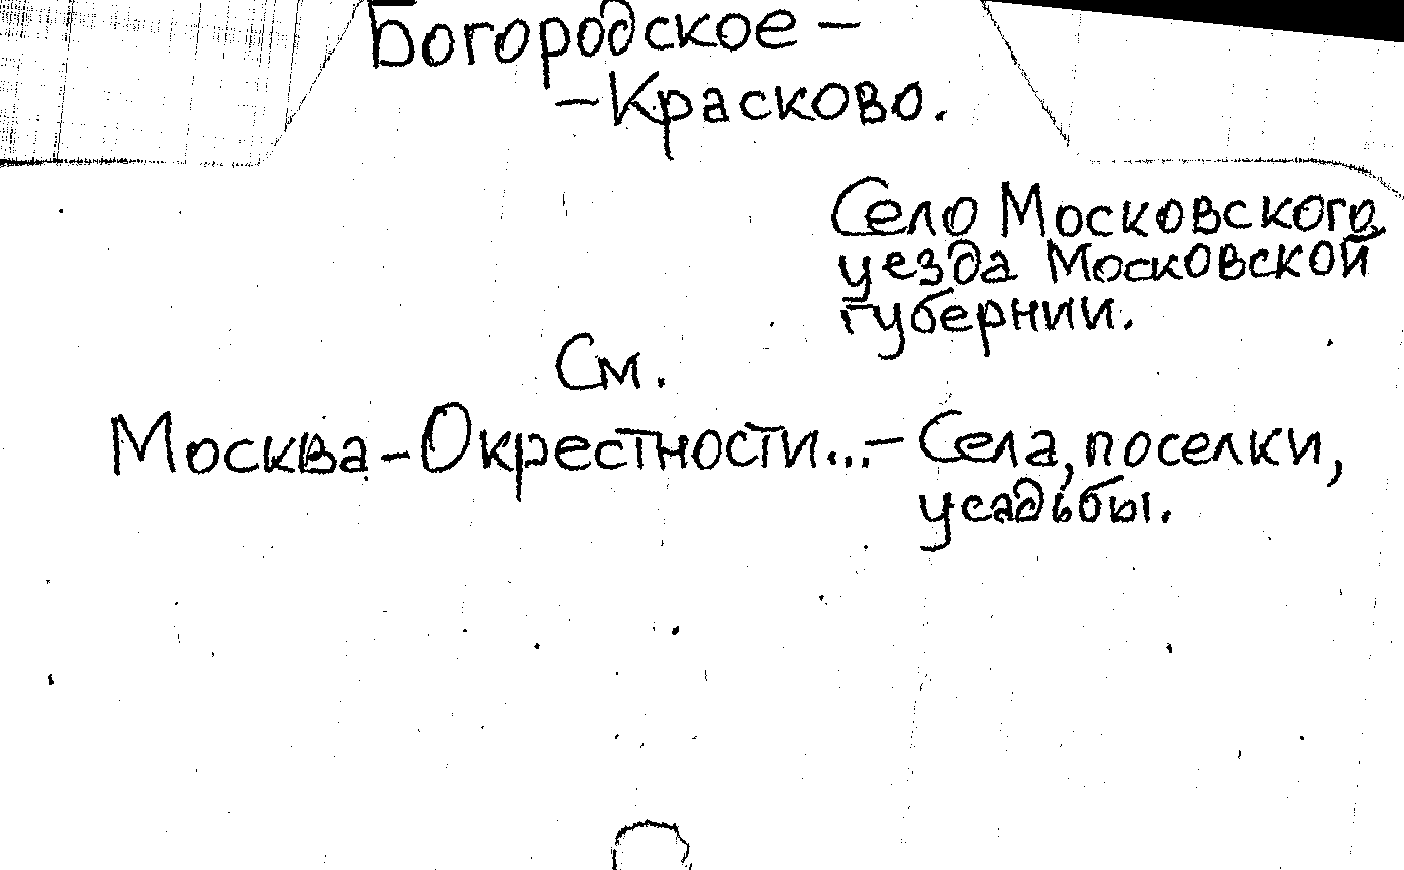 Богородское –
– Красково.
Село Московского
уезда Московской
губернии.
См.
Москва – Окрестности... – Села, поселки,
усадьбы.